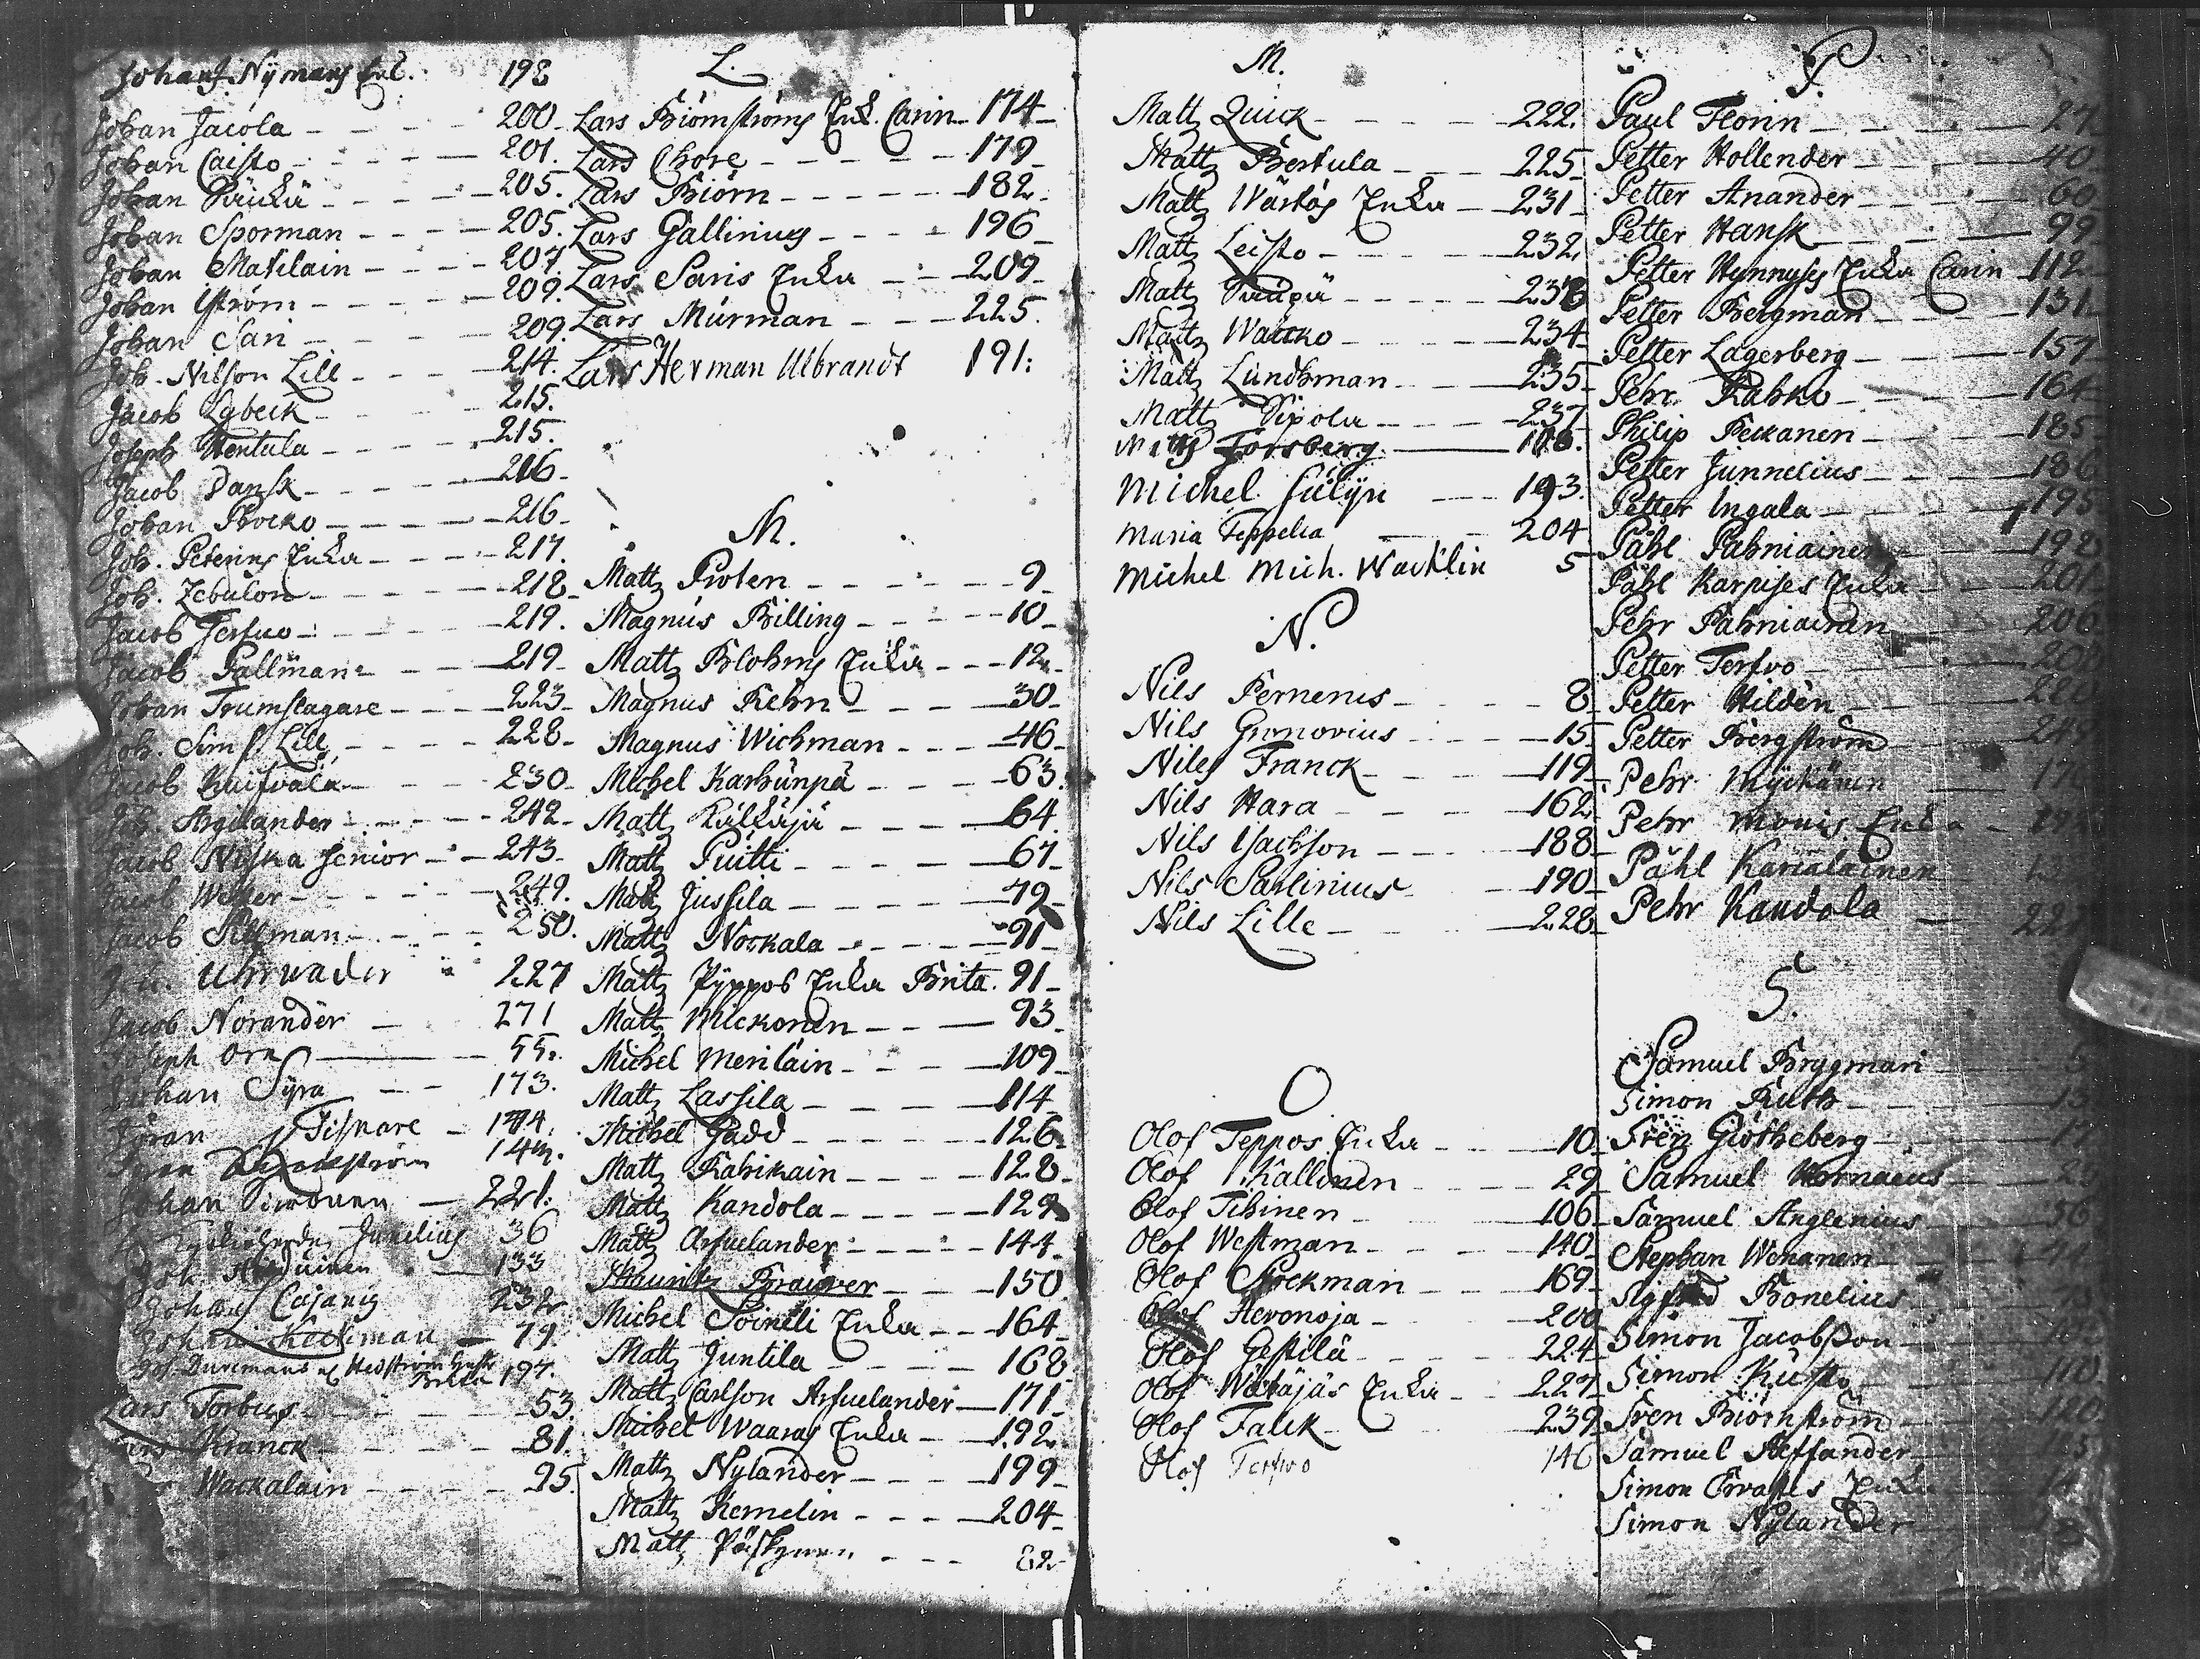 Johan Nymans Enk. 198
Johan Jacola 200
Johan Caisto 201.
Johan 205.
Johan Sporman 205.
Johan Matilain 207
Johan Iström 209.
Johan Sari 209.
Joh. Nilsson Lill 214.
Jacob Lybeck 215.
Joseph Hentula 215.
Jacob Dansk 216
Johan Bocko 216
Joh. Peterins Enka 217.
Joh. Zebulon 218
Jacob Terfvo 219.
Jacob Pallman 219
Johan Trumslagare 223
Joh. Sim. Lill 228
Jacob 230
Joh. Argelander 242
Jacob Niska Senior 243
Jacob Welker 249.
Jacob Sillman 250.
Joh. Uhrwader 227
Jacob Norander 271
Joseph Orn 55.
Johan Syra 173.
Jöran Fiskare 144.
221.
Junelius 36
133
Johan Cajanus 232
Johan Keckman 79.
194.
Lars Torbus 53.
Lars Kranck 81.
Wackalain 95.
L.
Lars Biörnströms Enk. Carin 174
Lars Chore 179
Lars Biörn 182
Lars Gallinius 196
Lars Saris Enka 209
Lars Murman 225.
Lars Herman Ulbrandt 191:
M.
Matts Proten 9
Magnus Billing 10
Matts Blohms Enka 12
Magnus Rehn 30
Magnus Wichman 46
Michel Karhunpä 63.
Matts Kälkäjä 64
Matts Puitti 67
Matts Jussila 79
Matts Noskala 91
Matts Pyppos Enka Brita. 91
Matts Mickonen 93
Michel Meriläin 109
Matts Lassila 114
Michel Gadd 126
Matts Kahikain 128
Matts Kandola 129
Matts Arfuelander 144
Mauritz Brauwer 150
Michel Soineli Enka 164
Matts Juntila 168
Matts Carlson Arfuelander 171
Michel Waaras Enka 192
Matts Nylander 199
Matts Kemelin 204
Matts 82
M.
Matts Quick 222.
Matts Bertula 225
Matts Enka 231
Matts Leisto 232
Matts
Matts Waicko 234
Matts Lundhman 235
Matts Sipola 237
Matts Forsberg 108.
Michel Julijn 193.
Maria Teppelia 204
Michel Mich. Wacklin 5
N.
Nils Fernenis 8
Nils Gronovius 15
Niles Franck 119
Nils Hara 162
Nils Isackson 188
Nils Sarlinius 190
Nils Lille 228
O
Olof Teppos Enka 10
Olof Kallinen 29
Olof Tihinen 106
Olof Westman 140
Olof Stockman 169
Olof Heronoja 200
Olof Gestilä 224
Olof Enka 227
Olof Falck 239
Olof Terfvo 146
P.
Paul Florin 27
Petter Hollender 40
Petter Anander 60
Petter Hansk 99
Petter Hynnyses Enka Carin 112
Petter Bergman 131
Petter Lagerberg 157
Pehr Kahko 164
Philip Peckanen 185
Petter Junnelius 186
Petter Ingala 195
Påhl Pahniainen 198
Påhl Karpises Enka 201
Pehr Pahniainen 206
Petter Terfvo
Petter Hildèn
Petter Bergström
Pehr Myckänen
Pehr Monis Enka
Påhl Karialainen
Pehr Kandola
S.
Samuel Brygman
Simon Ruth
Sven Giötheberg
Samuel Hornæus
Samuel Anglenius
Stephan Wehanen
Sigfred Bonelius
Simon Jacobsson
Simon Kusto
Sven Biörnström
Samuel Heffander
Simon Enka
Simon Nylander